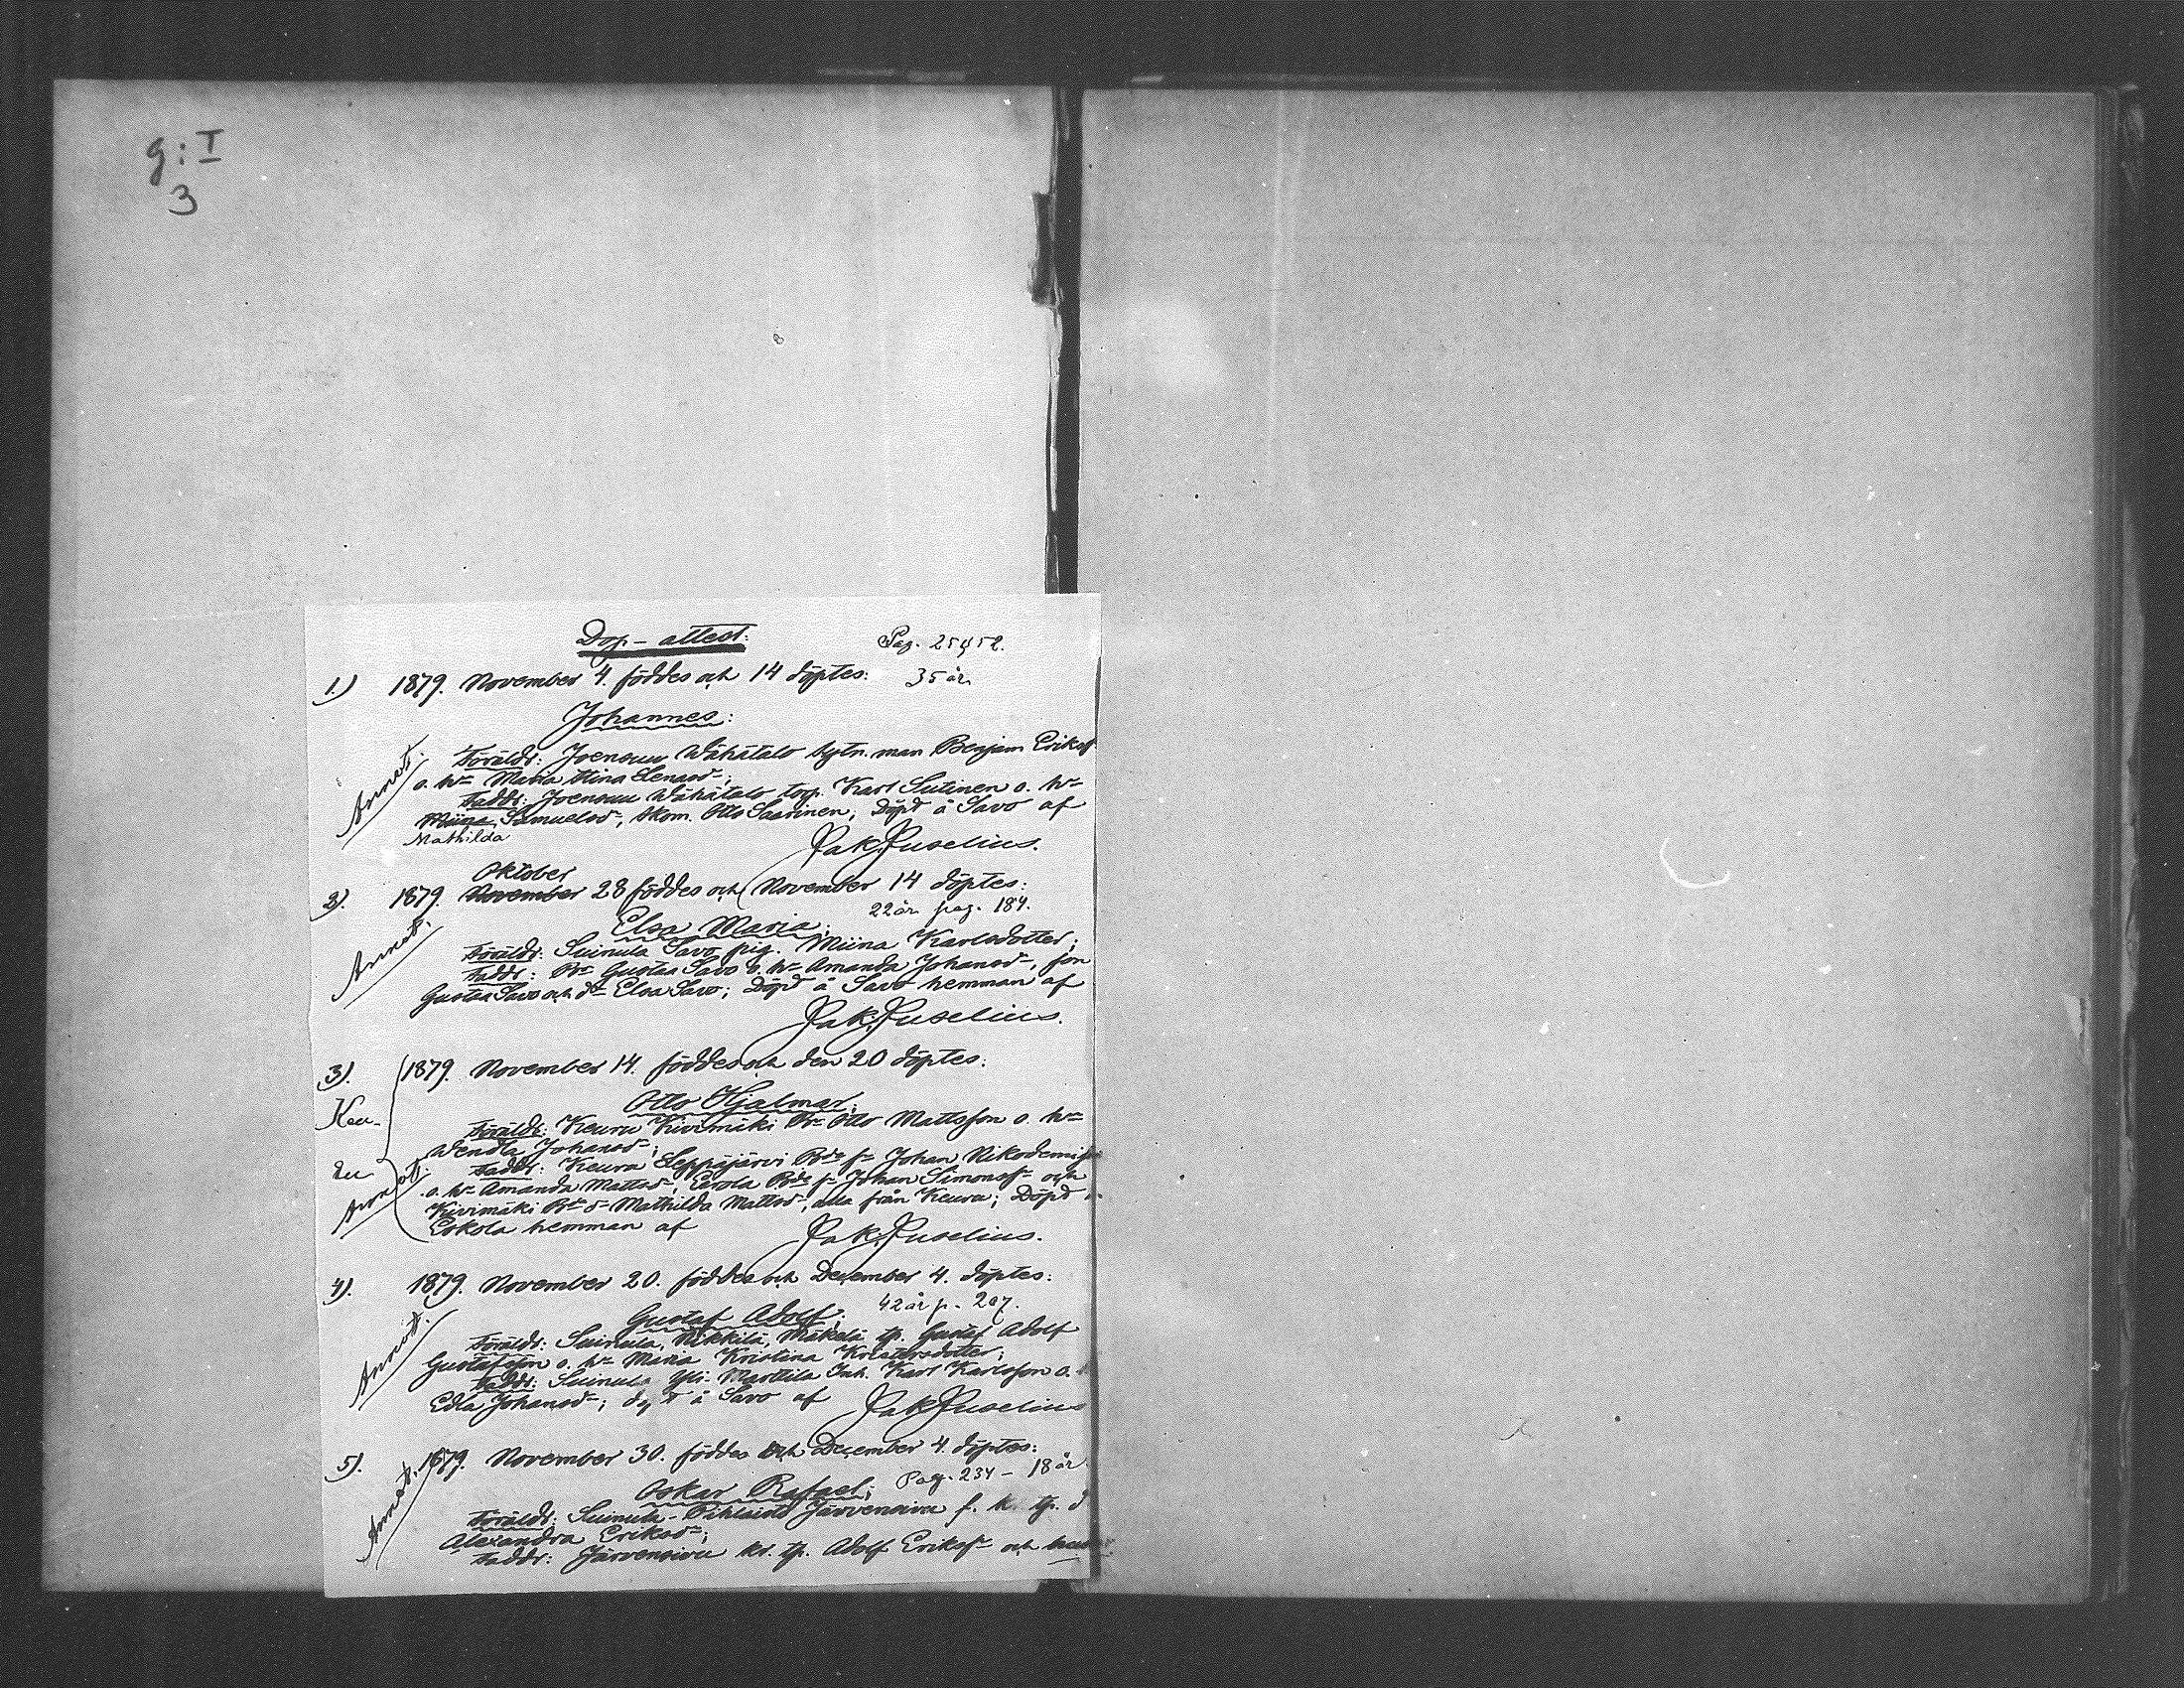 g: I
3
Dop-attest:
Pag. 25
1.) 1879. November 4. föddes och 14 döptes: 35 år
Johannes:
Annot. Föräldr: Joensuu Wähätalo sytn. man Benjam Erikss
o. hn Maria Stina Lenasd;
Faddr: Joensuu Wähätalo torp. Karl Sutinen o. hn
Miina Samuelsd, skom. Otto Saarinen; Döpt å Savo af
Mathilda
Jak. Juselius.
Oktober
2). 1879. November 28 föddes och November 14 döptes:
Elsa Maria: 22 år pag. 184.
Annot. Föräldr: Suinula Savo pig. Miina Karlsdotter;
Faddr: Bn Gustaa Savo o. hn Amanda Johansd, son
Gustaa Savo och dr Elsa Savo; Döpt å Savo hemman af
Jak. Juselius.
3). 1879. November 14. föddes och den 20 döptes:
Keu-
Otto Hjalmar:
Föräldr: Keuru Kivimäki Bn Otto Mattsson o. hn
Wendla Johansd;
ru Faddr: Keuru Leppäjärvi Bde sn Johan Nikodemiss
Annot. o. hn Amanda Mattsd, Eerola Bde sn Johan Simonss och
Kivimäki Bn dr Mathilda Mattsd, alla från Keuru; Döpt
Eskola hemman af
Jak. Juselius.
4). 1879. November 20. föddes och December 4. döptes:
Gustaf Adolf: 42 år p. 207.
Annot. Föräldr: Suinula, Nikkilä, Mäkelä tp. Gustaf Adolf
Gustafsson o. hn Maria Kristina Kristersdotter;
Faddr: Suinula Yli-Marttila Inh. Karl Karlsson o.
Edla Johansd; döpt å Savo af Jak. Juselius
5). 1879. November 30. föddes och December 4. döptes:
Oskar Rafael: Pag. 234 - 18 år
Annot. Föräldr: Suinula-Pihlaisto Järvensivu f. k. tp. d
Alexandra Eriksd;
Faddr: Järvensivu kr. tp. Adolf Erikss och